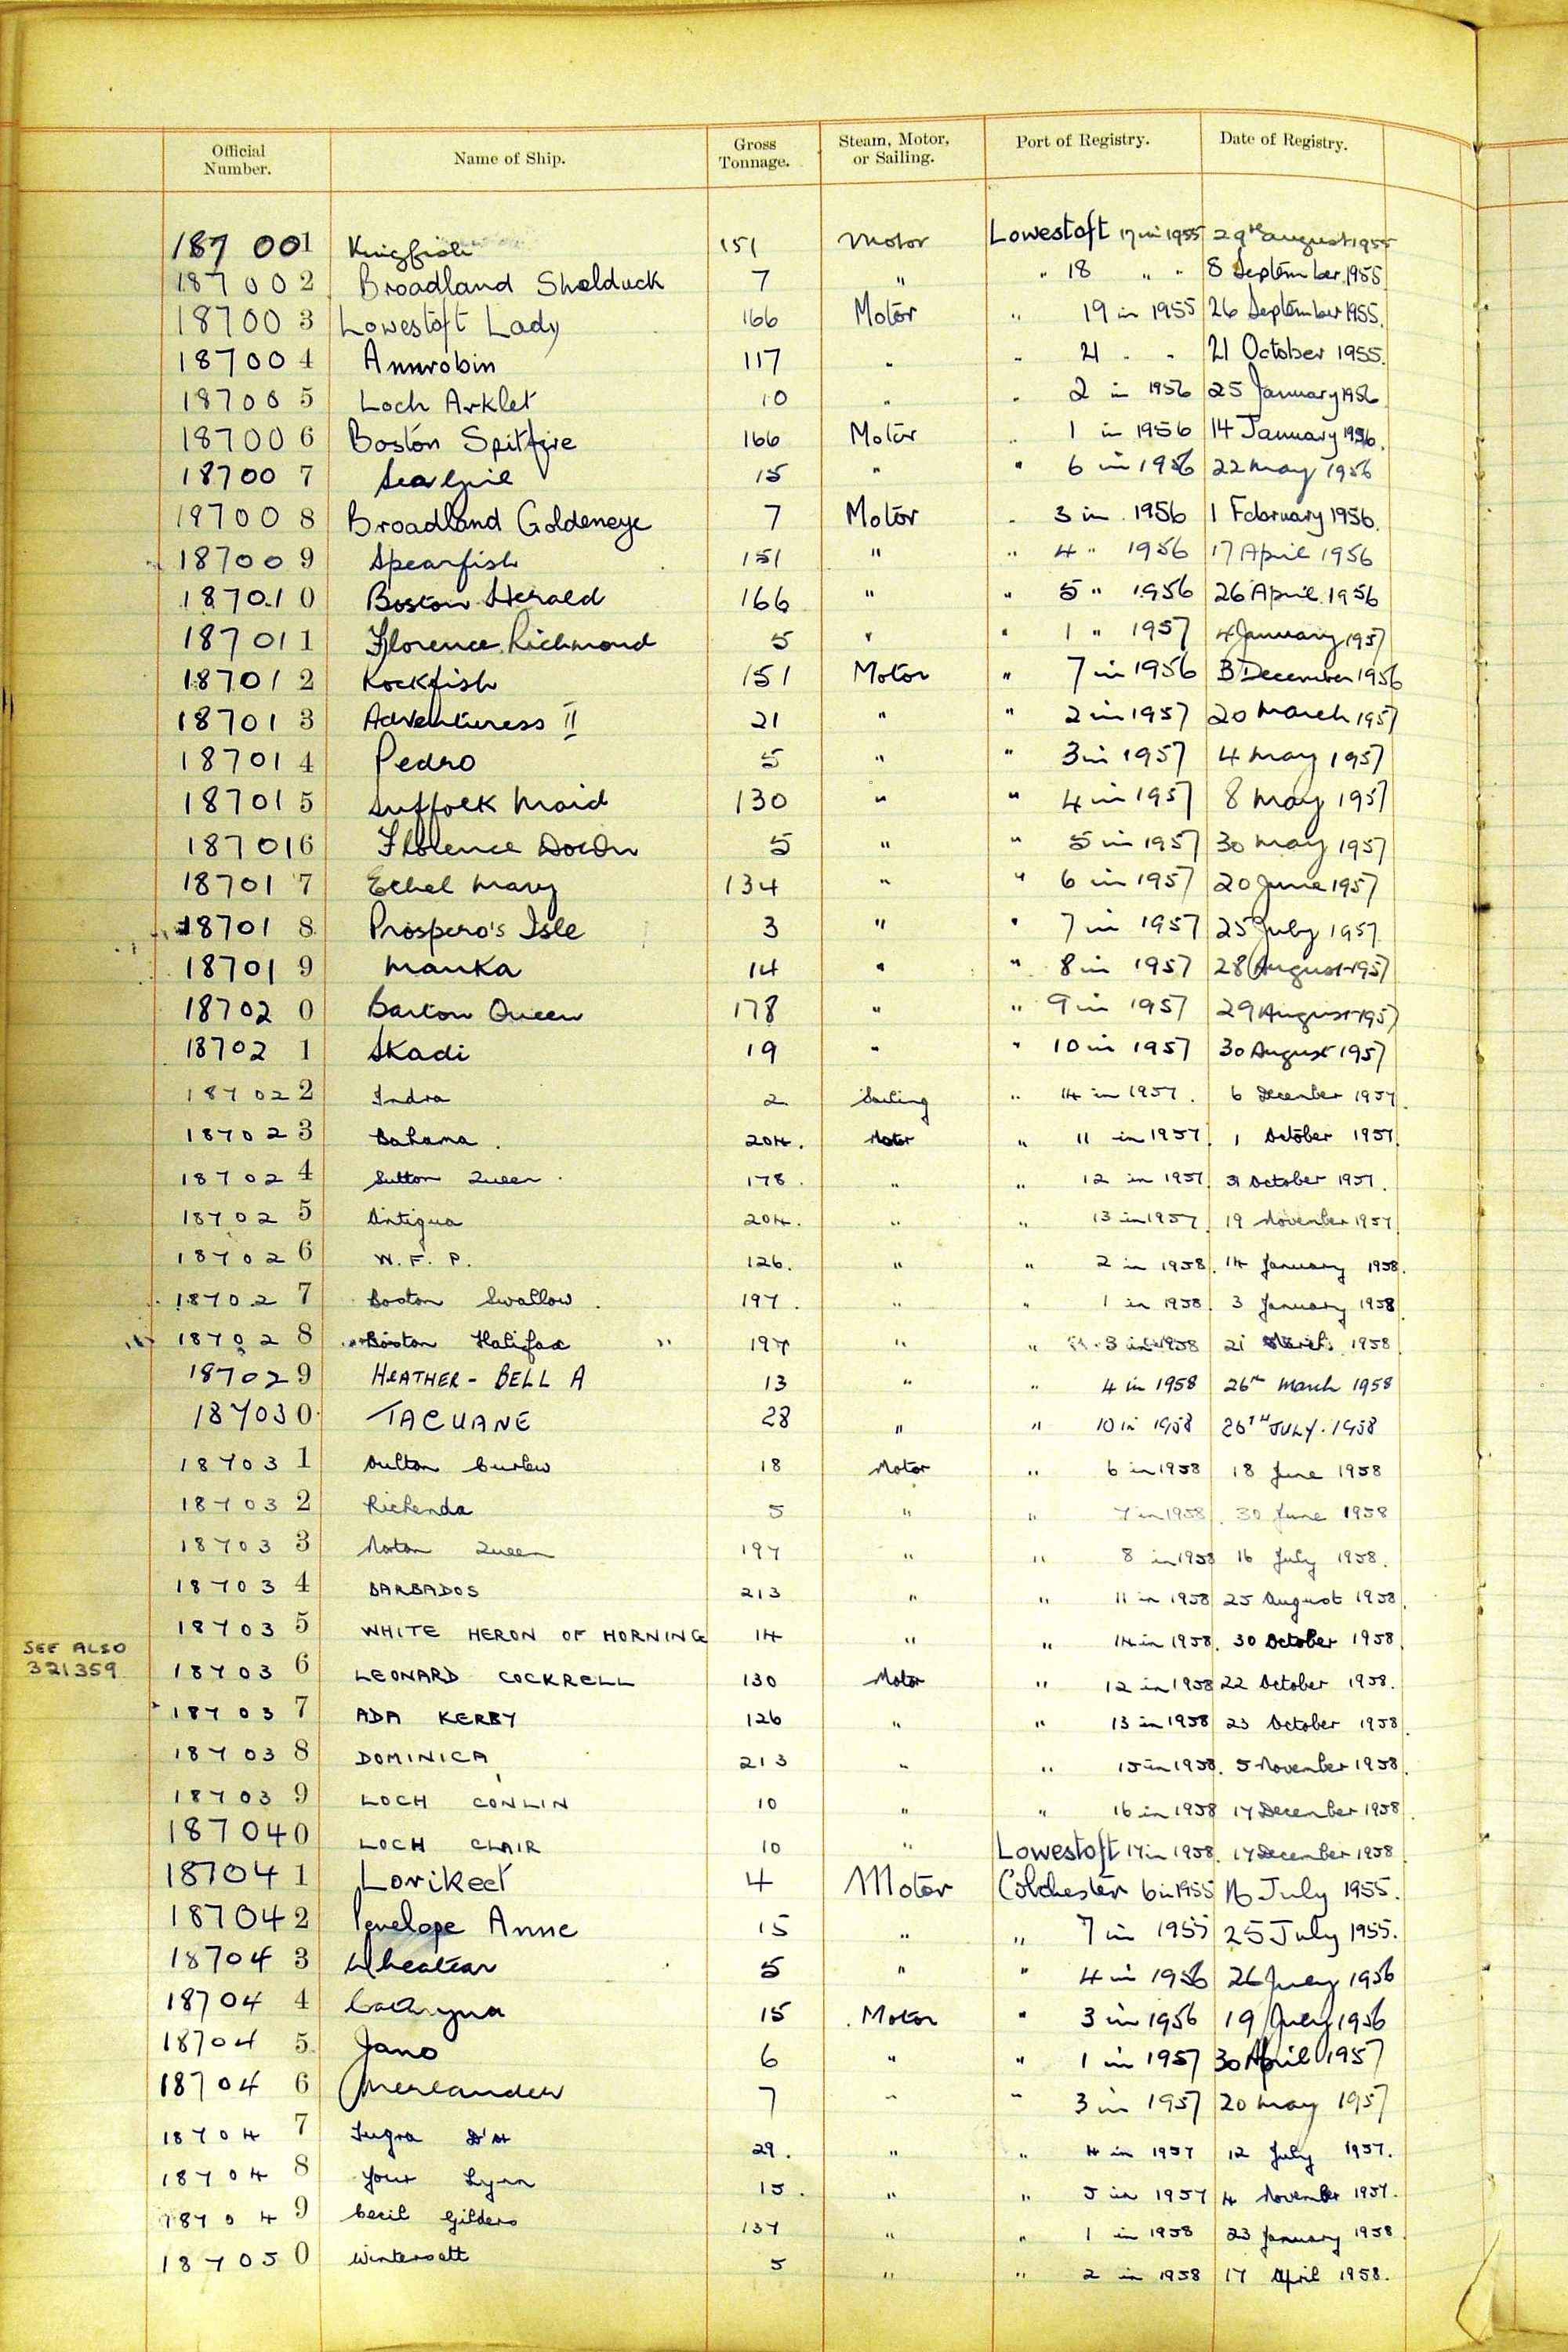 Official Number. Name of Ship. Gross Tonnage. Steam, Motor, or Sailing. Port of Registry. Date of Registry.
187 001 Kingfish 151 Motor Lowestoft 17 in 1955 29th august 1955
187002 Broadland Shelduck 7 " " 18 " " 8 September 1955
187003 Lowestoft Lady 166 Motor " 19 in 1955 26 September 1955.
187004 Annrobin 117 " " 21 " " 21 October 1955.
187005 Loch Arklet 10 " " 2 in 1956 25 January 1956
187006 Boston Spitfire 166 Motor " 1 in 1956 14 January 1956.
187007 15 " " 6 in 1956 22 May 1956
187008 Broadland Goldeneye 7 Motor " 3 in 1956 1 February 1956.
187009 Spearfish 151 " " 4 " 1956 17 April 1956
187010 Boston Herald 166 " " 5 " 1956 26 April 1956
187011 Florence Richmond 5 " " 1 " 1957 4 January 1957
187012 Rockfish 151 Motor " 7 in 1956 3 December 1956
187013 Adventuress II 21 " " 2 in 1957 20 March 1957
187014 Pedro 5 " " 3 in 1957 4 May 1957
187015 Suffolk Maid 130 " " 4 in 1957 8 May 1957
187016 Florence 5 " " 5 in 1957 30 May 1957
187017 Ethel Mary 134 " " 6 in 1957 20 June 1957
187018 Prospero's Isle 3 " " 7 in 1957 25 July 1957
187019 Manka 14 " " 8 in 1957 28 August 1957
187020 Barton Queen 178 " " 9 in 1957 29 August 1957
187021 Skadi 19 " " 10 in 1957 30 August 1957
187022 Indra 2 Sailing " 14 in 1957. 6 December 1957.
187023 Bahama. 204. Motor " 11 in 1957. 1 October 1957.
187024 Sutton Queen. 178. " " 12 in 1957. October 1957.
187025 Antigua 204. " " 13 in 1957. 19 November 1957
187026 W. F. P. 126. " " 2 in 1958. 14 January 1958.
187027 Boston Swallow. 197. " " 1 in 1958. 3 January 1958
187028 Boston Halifax 197 " " 3 in 1958 21 March 1958
187029 HEATHER-BELL A 13 " " 4 in 1958 26th March 1958
187030 TACUANE 28 " " 10 in 1958 26TH JULY. 1958
187031 Oulton Curlew 18 Motor " 6 in 1958 18 June 1958
187032 Richenda 5 " " 7 in 1958. 30 June 1958
187033 Norton Queen 197 " " 8 in 1958 16 July 1958.
187034 BARBADOS 213 " " 11 in 1958 25 August 1958.
187035 WHITE HERON OF HORNING 14 " " 14 in 1958. 30 October 1958.
SEE ALSO
321359
187036 LEONARD COCKRELL 130 Motor " 12 in 1958 22 October 1958.
187037 ADA KERBY 126 " " 13 in 1958 23 October 1958.
187038 DOMINICA 213 " " 15 in 1958. 5 November 1958.
187039 LOCH CONLIN 10 " " 16 in 1958 17 December 1958.
187040 LOCH CLAIR 10 " Lowestoft 17 in 1958. 17 December 1958
187041 Lorikeet 4 Motor Colchester 6 in 1955 16 July 1955.
187042 Penelope Anne 15 " " 7 in 1955 25 July 1955.
187043 Wheatear 5 " " 4 in 1956 26 July 1956
187044 15 Motor " 3 in 1956 19 July 1956
187045 Jano 6 " " 1 in 1957 30 April 1957
187046 7 " " 3 in 1957 20 May 1957
187047 29. " " 4 in 1957 12 July 1957.
187048 Your Lynn 15. " " 5 in 1957 4 November 1957.
187049 Cecil Gilders 137 " " 1 in 1958 23 January 1958.
187050 Wintersett 5 " " 2 in 1958 17 April 1958.